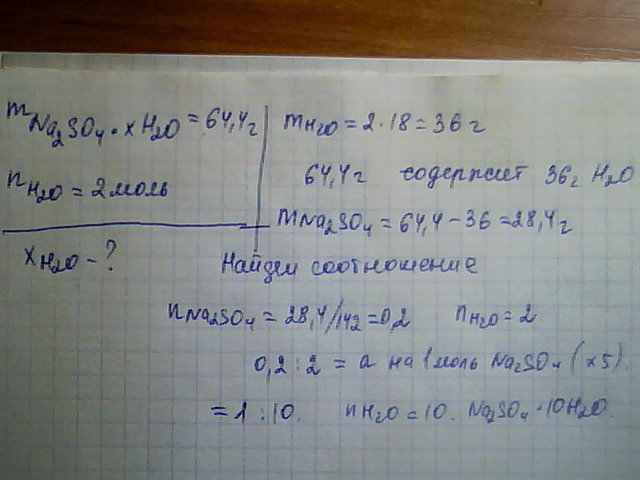 mNa₂SO₄·xH₂O = 64,4г
nH₂O = 2 моль
xH₂O - ?
mH₂O = 2·18 = 36 г
64,4г содержит 36г H₂O
mNa₂SO₄ = 64,4 - 36 = 28,4г
Найдем соотношение
nNa₂SO₄ = 28,4/142 = 0,2 nH₂O = 2
0,2 : 2 = а на 1 моль Na₂SO₄ (x5)
= 1 : 10. nH₂O = 10. Na₂SO₄·10H₂O.